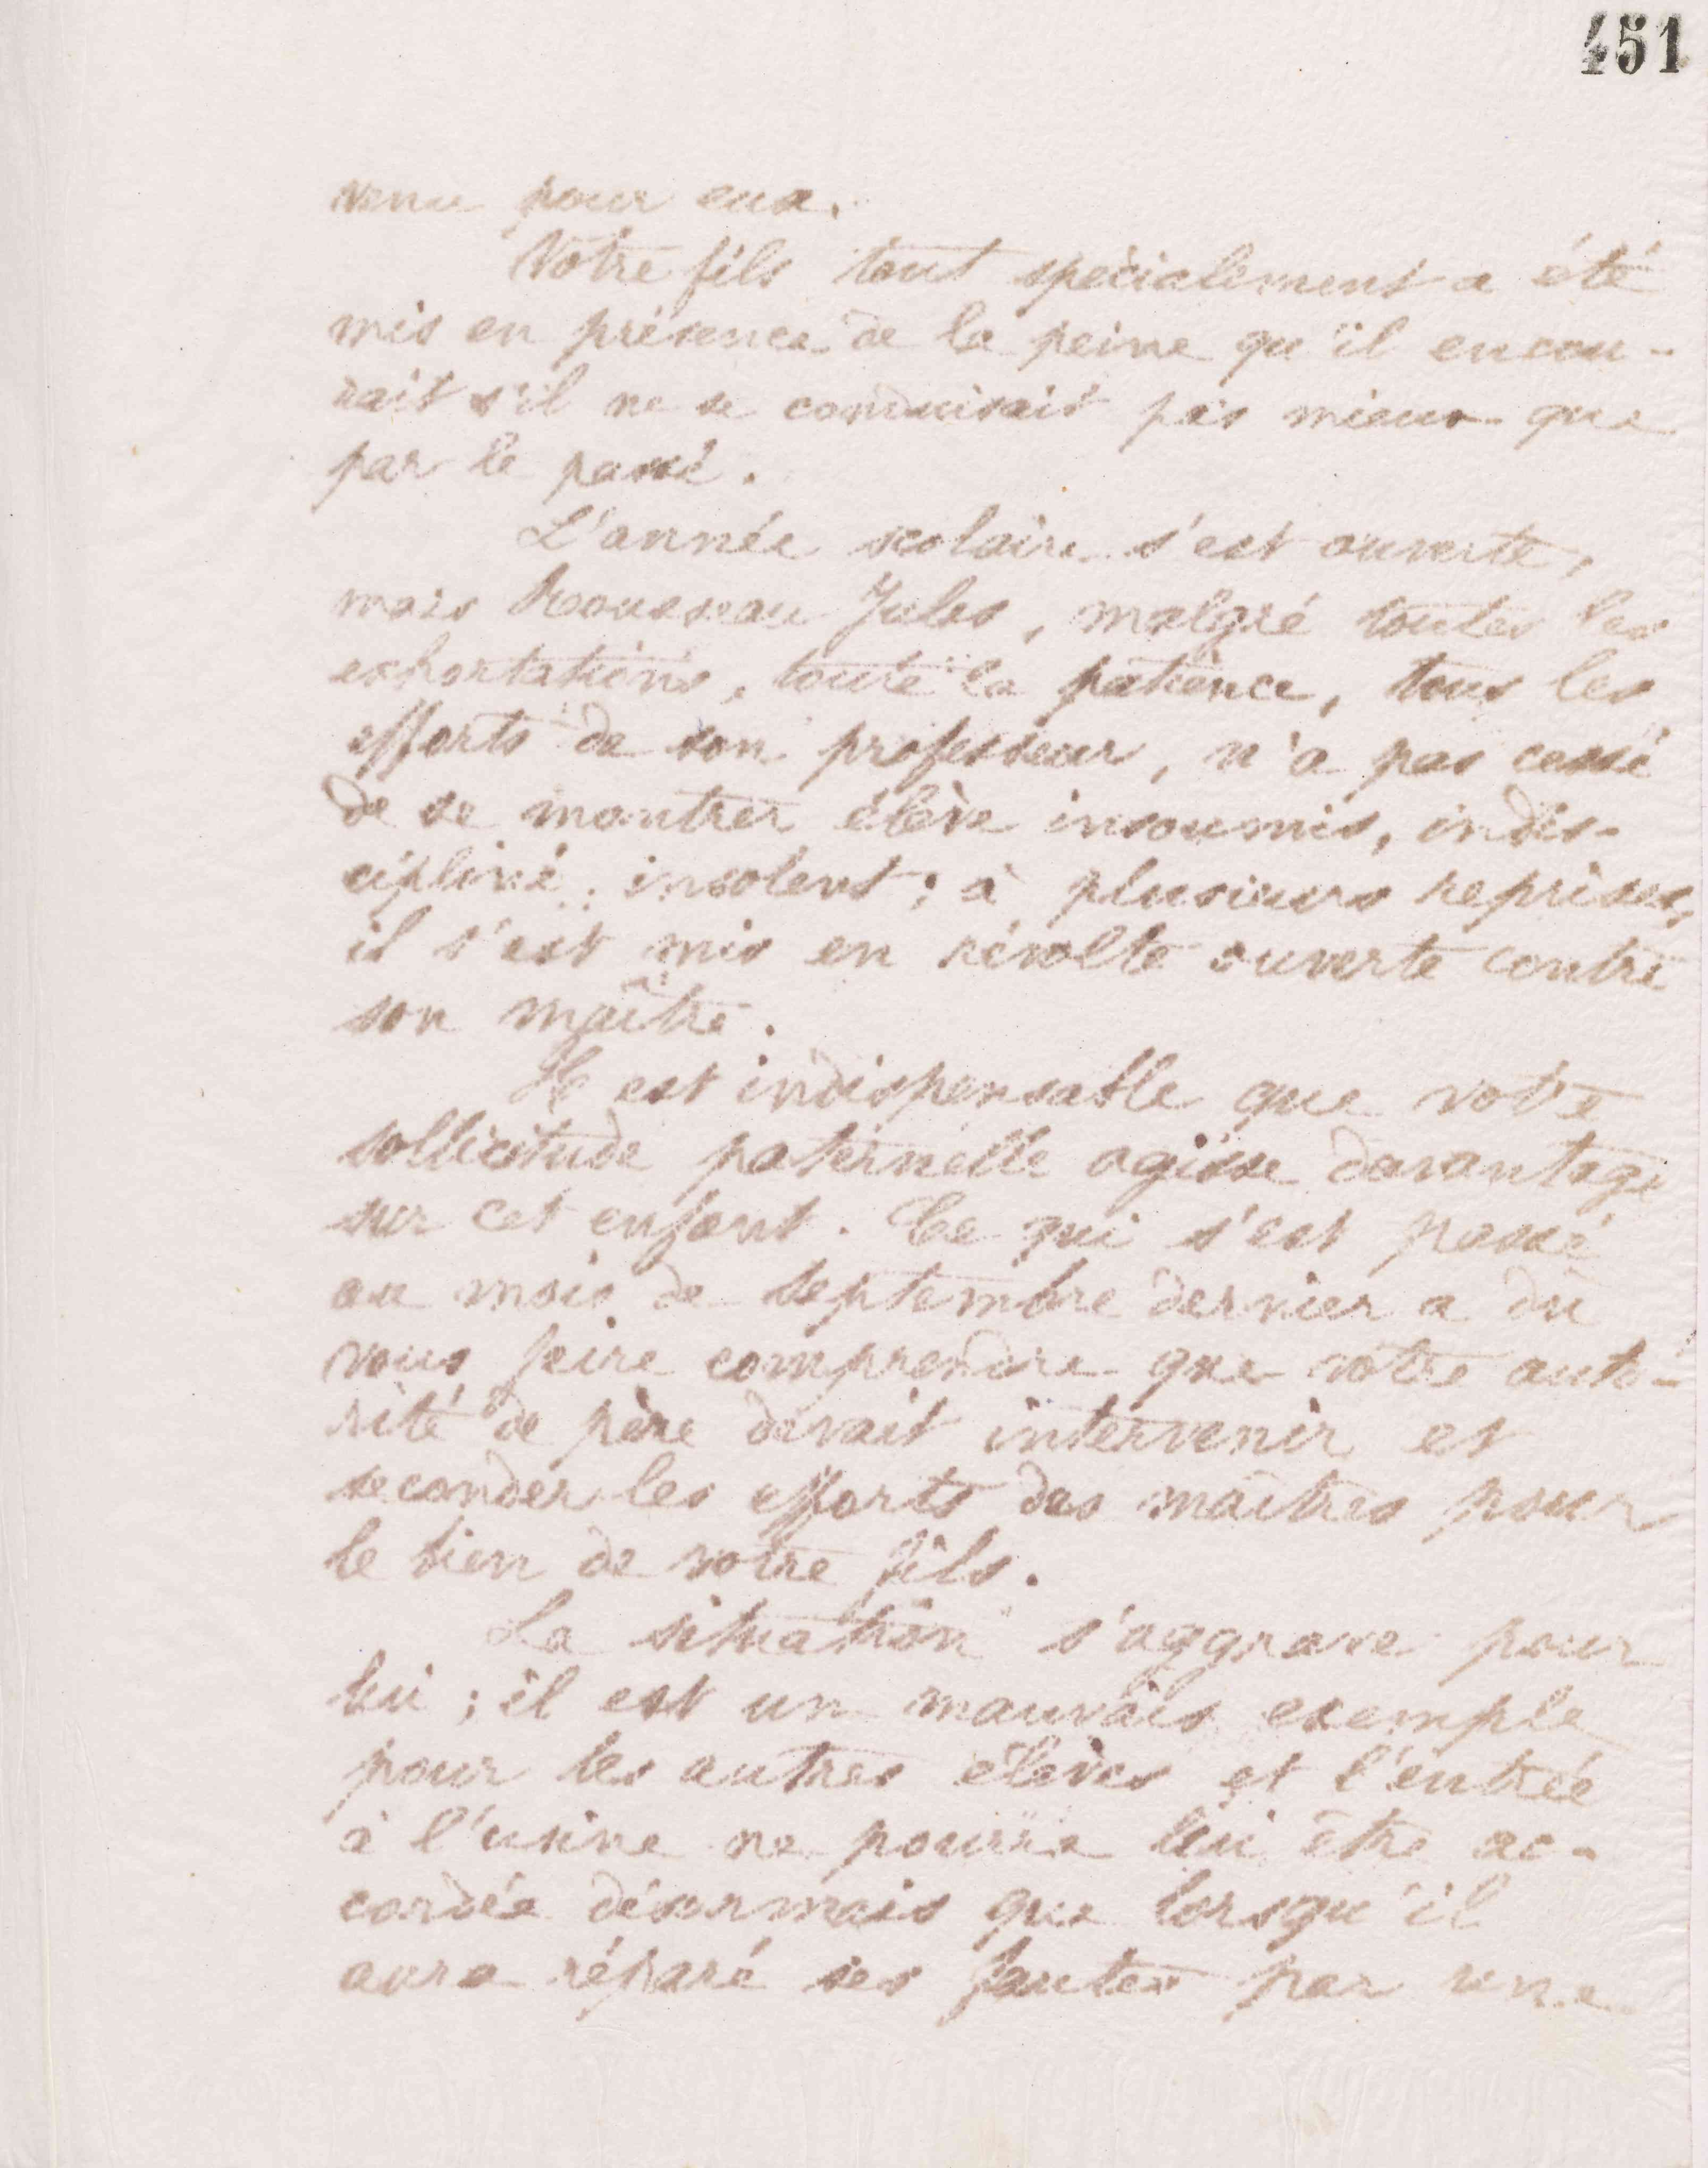 451
venu pour eux.
Votre fils tout spécialement a été
mis en présence de la peine qu'il encou-
rait s'il ne se conduisait pas mieux que
par le passé.
L'année scolaire s'est ouverte,
mais Rousseau Jules, malgré toutes les
exhortations, toute la patience, tous les
efforts de son professeur, n'a pas cessé
de se montrer élève insoumis, indis-
cipliné, insolent; à plusieurs reprises,
il s'est mis en révolte ouverte contre
son maître.
Il est indispensable que votre
sollicitude paternelle agisse davantage
sur cet enfant. Ce qui s'est passé
au mois de septembre dernier a dû
vous faire comprendre que votre auto-
rité de père devait intervenir et
seconder les efforts des maîtres pour
le bien de votre fils.
La situation s'aggrave pour
lui; il est un mauvais exemple
pour les autres élèves et l'entrée
à l'usine ne pourra lui être ac-
cordée désormais que lorsqu'il
aura réparé ses fautes par une